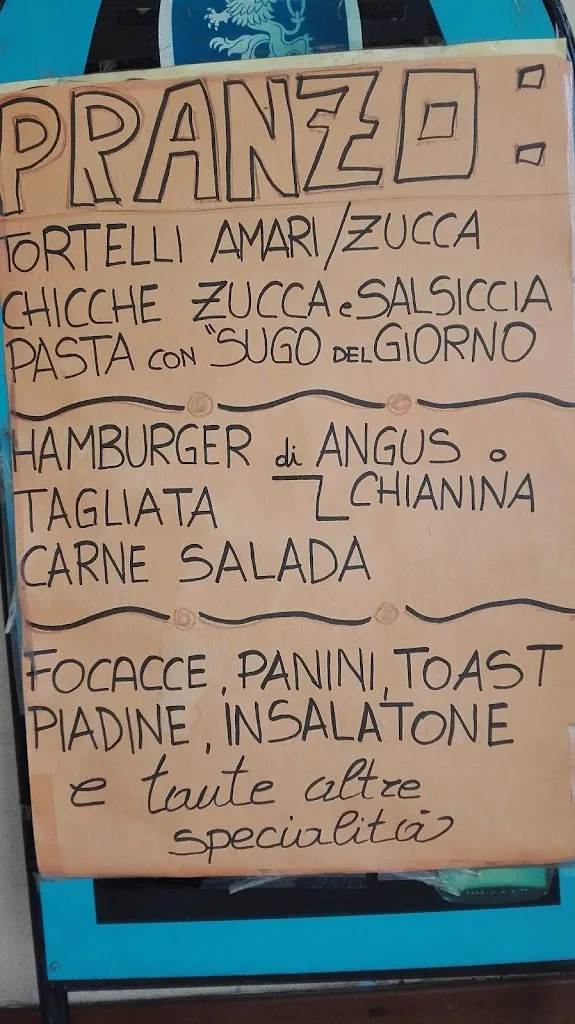 PRANZO:
TORTELLI AMARI/ZUCCA
CHICCHE ZUCCA e SALSICCIA
PASTA CON "SUGO DEL GIORNO
HAMBURGER di ANGUS o
TAGLIATA CHIANINA
CARNE SALADA
FOCACCE, PANINI, TOAST
PIADINE, INSALATONE
e tante altre
specialità